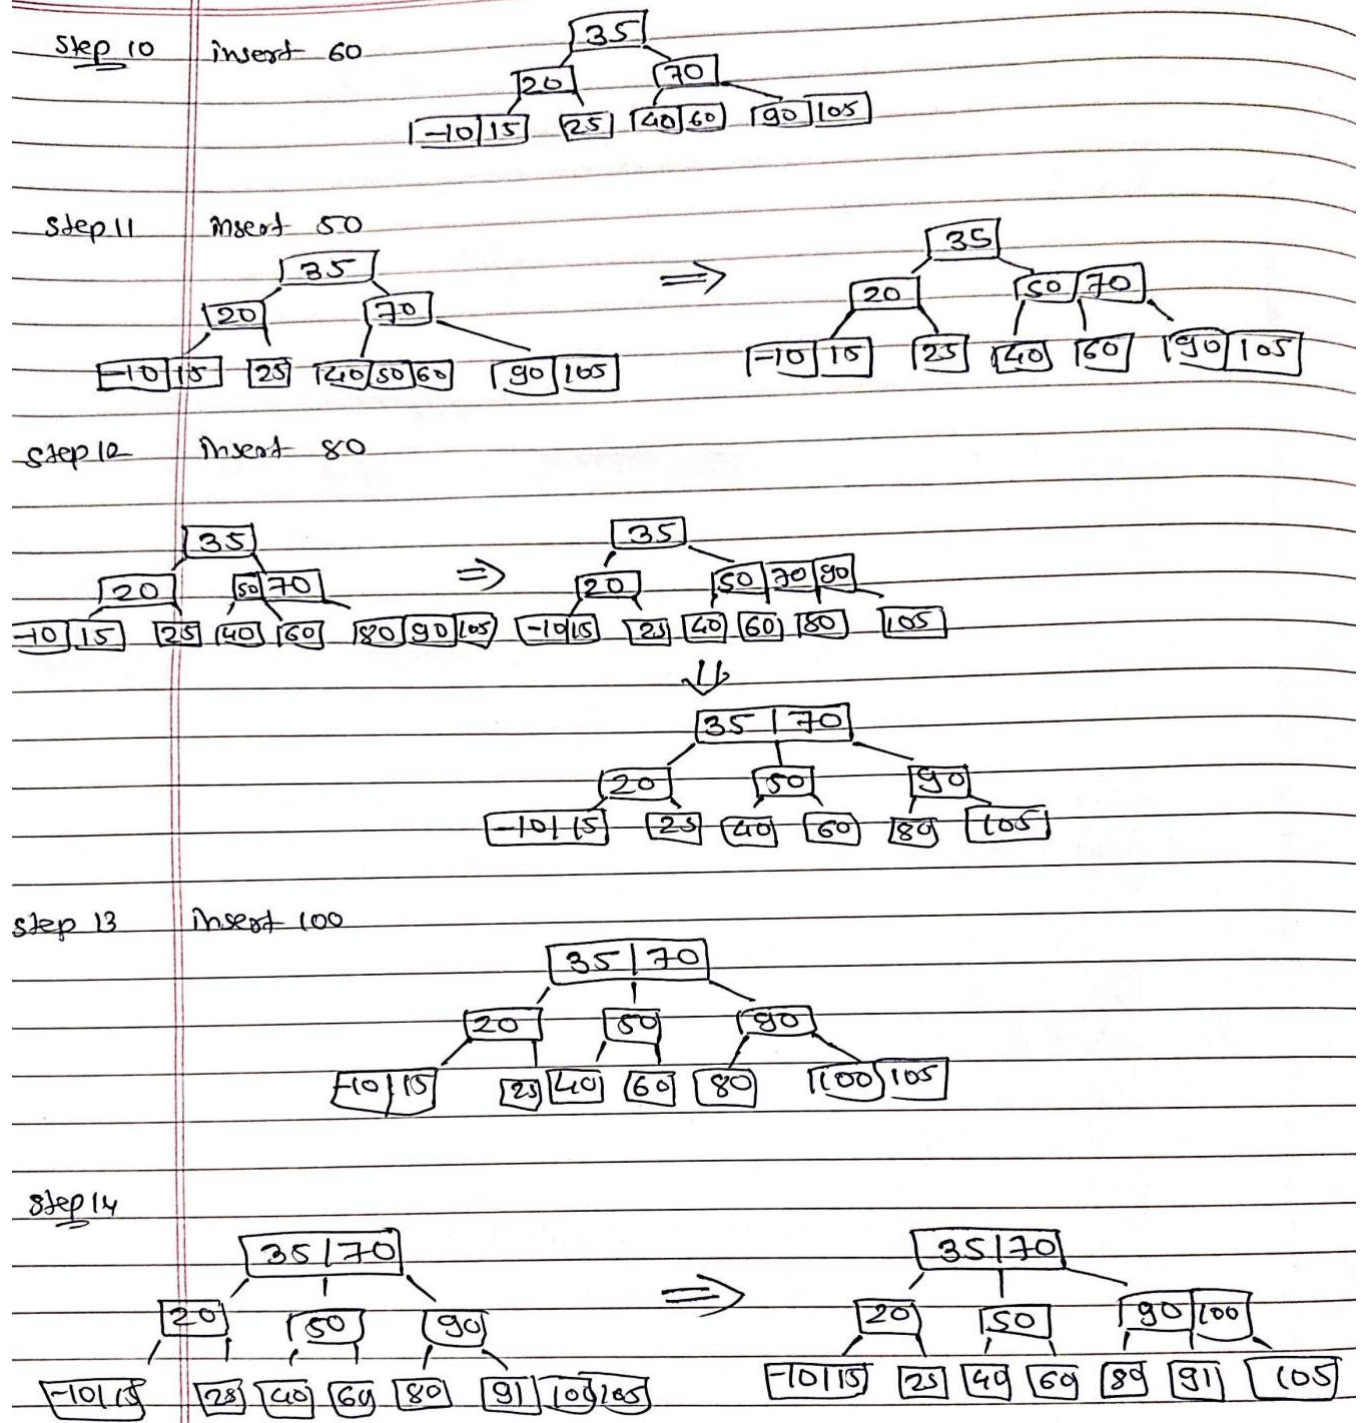 Step 10 insert 60
35
20 70
-10 15 25 40 60 90 105
Step 11 insert 50
35
20 70
-10 15 25 40 50 60 90 105
⇒
35
20 50 70
-10 15 25 40 60 90 105
Step 12 insert 80
35
20 50 70
-10 15 25 40 60 80 90 105
⇒
35
20 50 70 90
-10 15 25 40 60 80 105
⇓
35 70
20 50 90
-10 15 25 40 60 80 105
Step 13 insert 100
35 70
20 50 90
-10 15 25 40 60 80 100 105
Step 14
35 70
20 50 90
-10 15 25 40 60 80 91 100 105
⇒
35 70
20 50 90 100
-10 15 25 40 60 80 91 105